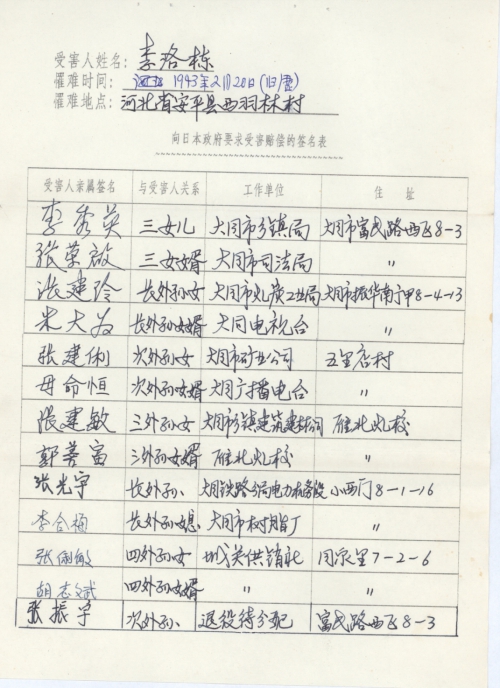 受害人姓名：李洛栋
罹难时间：1943年2月20日(旧历)
罹难地点：河北省安平县西羽林村
向日本政府要求受害赔偿的签名表
受害人亲属签名 与受害人关系 工作单位 住址
李秀英 三女儿 大同市乡镇局 大同市富民路西飞8-3
张荣啟 三女婿 大同市司法局 〃
张建玲 长外孙女 大同市化廣工业局 大同市振华南宁甲8-4-13
米大为 长外孙女婿 大同电视台 〃
张建俐 次外孙女 大同市矿业公司 五里店村
毋命恒 次外孙女婿 大同广播电台 〃
張建敏 三外孙女 大同市乡镇建筑建材公司 雁北农校
郭善富 三外孙女婿 雁北农校 〃
张光宇 长外孙 大同铁路分局电力机务段 小西门8-1-16
李合梅 长外孙媳 大同市树脂厂 〃
张俐敏 四外孙女 城关供销社 同泉里7-2-6
胡志斌 四外孙女婿 〃 〃
张振宇 次外孙 退役待分配 富民路西飞8-3